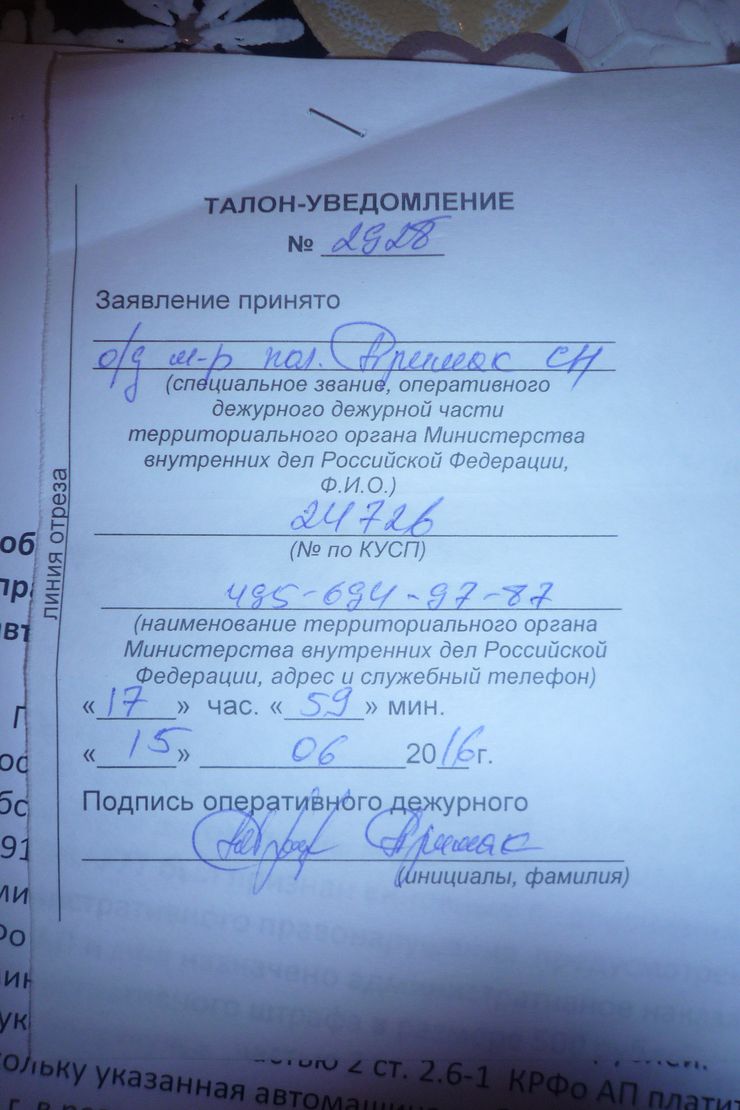 ТАЛОН-УВЕДОМЛЕНИЕ
№ 2928
Заявление принято
о/д м-р пол. Примак СН
(специальное звание, оперативного
дежурного дежурной части
территориального органа Министерства
внутренних дел Российской Федерации,
Ф.И.О.)
24726
(№ по КУСП)
495-694-97-87
(наименование территориального органа
Министерства внутренних дел Российской
Федерации, адрес и служебный телефон)
«17» час. «59» мин.
«15» 06 2016г.
Подпись оперативного дежурного
Примак
(инициалы, фамилия)
линия отреза
2 ст. 2.6-1 КРФо АП платит
указанная